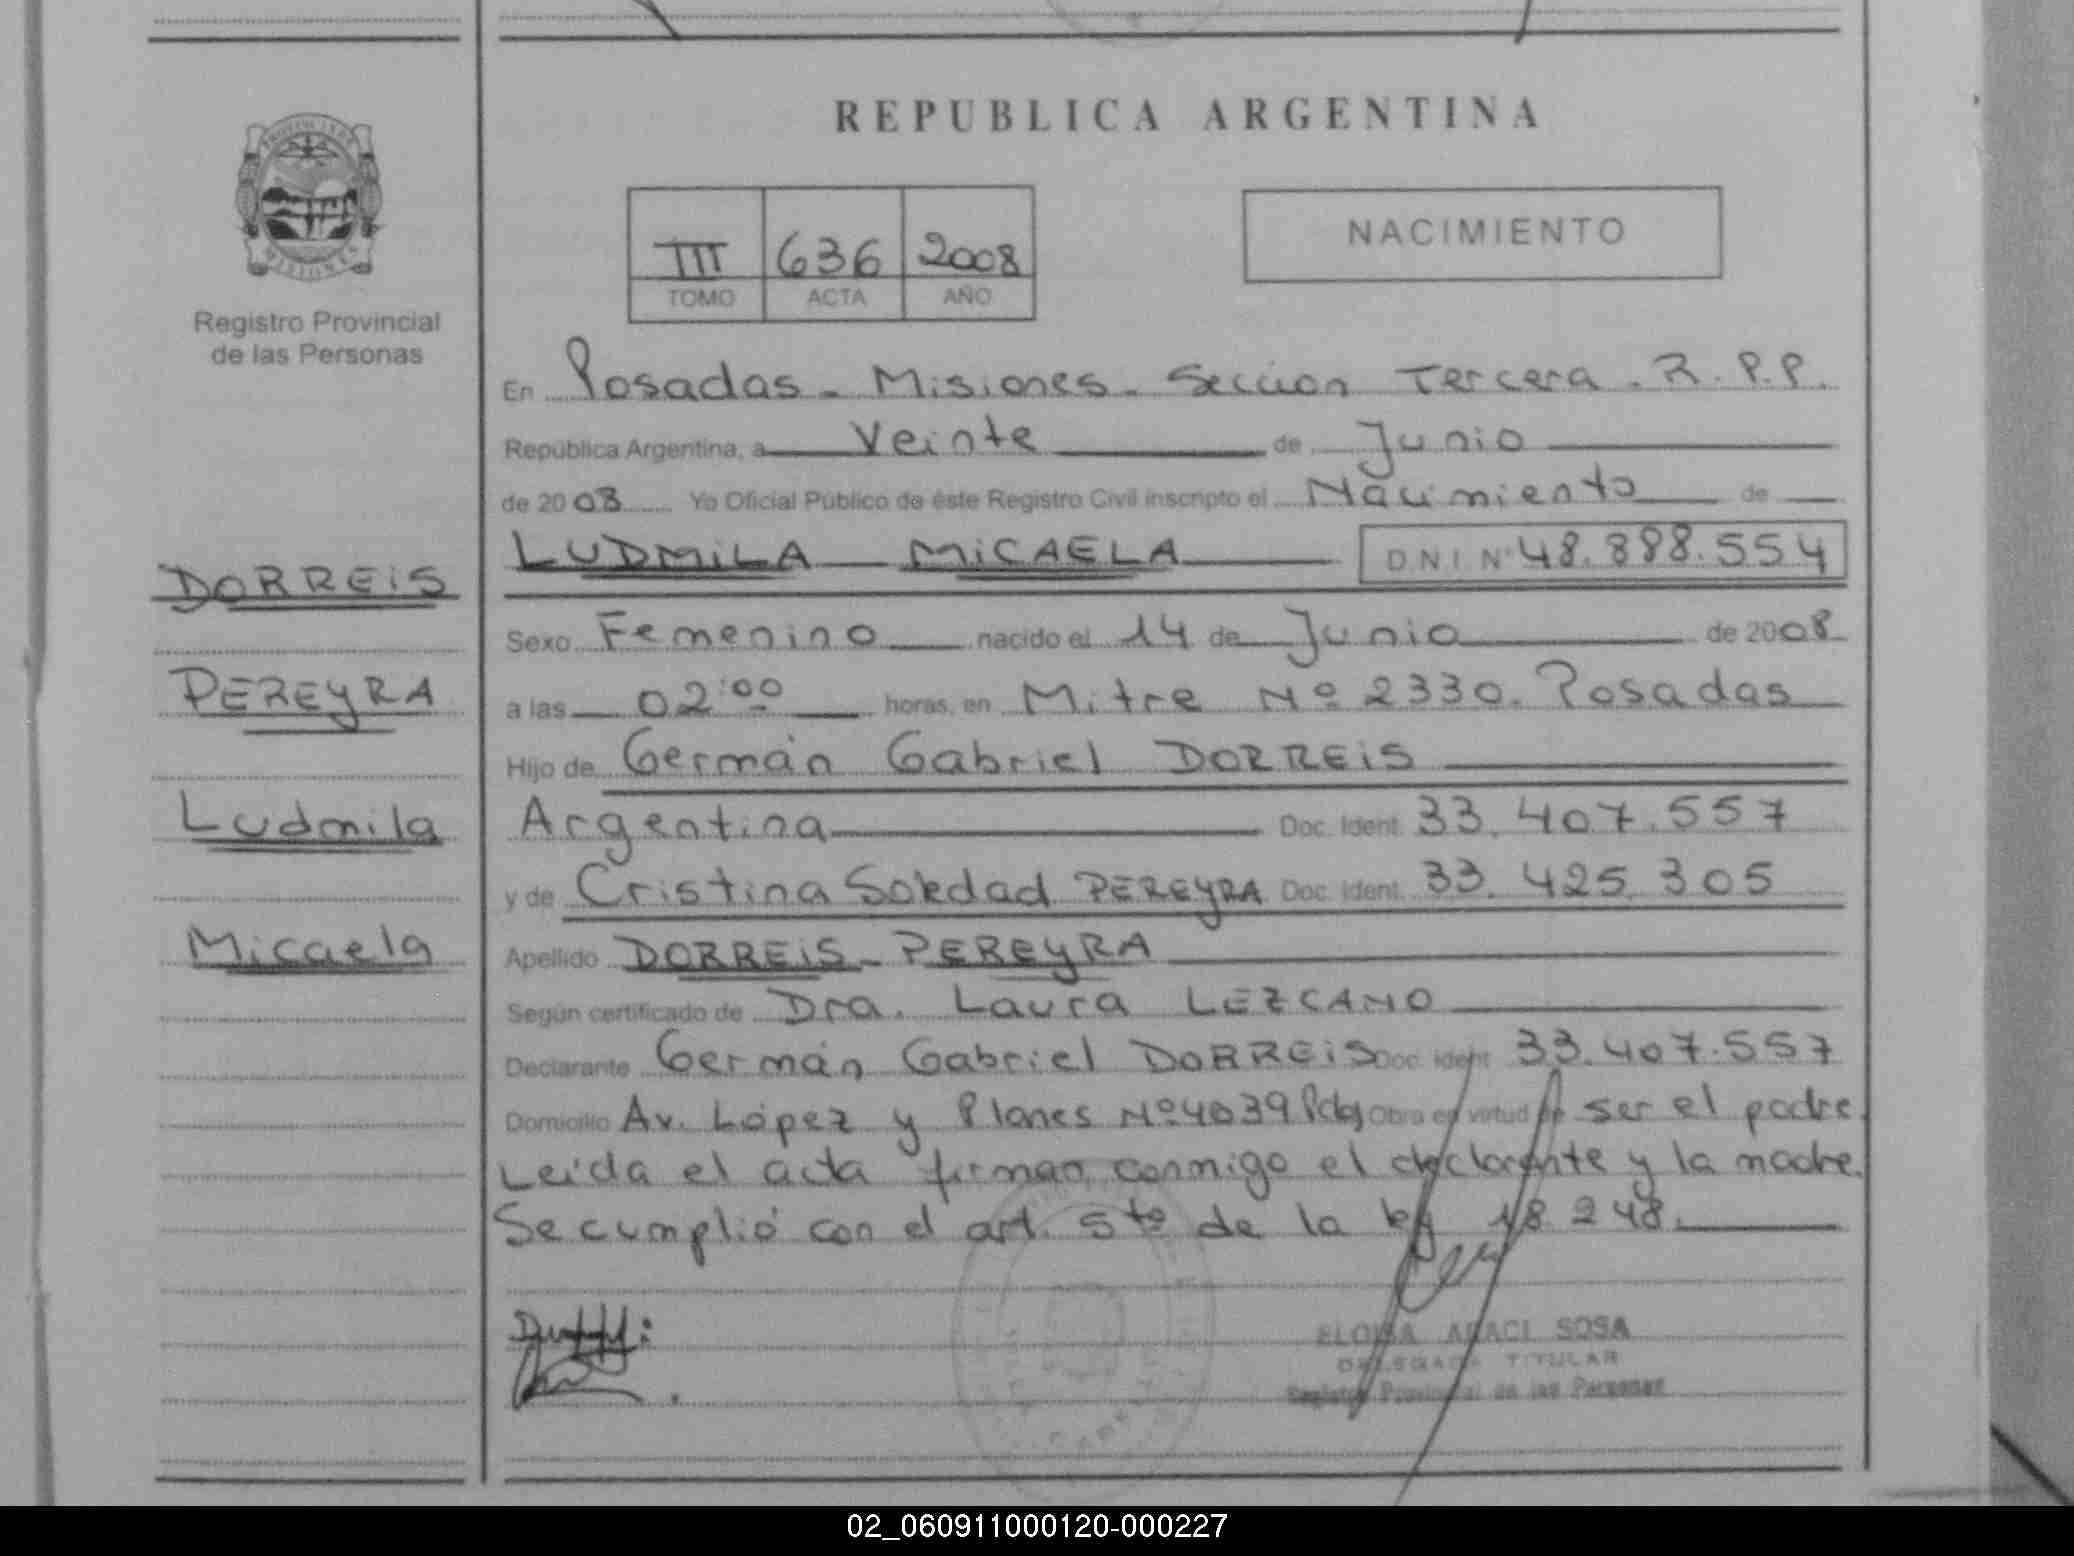 REPUBLICA ARGENTINA
PROVINCIA DE
MISIONES
Registro Provincial
de las Personas
III 636 2008
TOMO ACTA AÑO
NACIMIENTO
En Posadas - Misiones - Seccion Tercera . R. P.P.
República Argentina, a Veinte de Junio
de 2008 Yo Oficial Público de éste Registro Civil inscripto el Nacimiento de
LUDMILA MICAELA D.N.I. Nº 48.898.554
DORREIS
PEREYRA
Ludmila
Micaela
Sexo Femenino nacido el 14 de Junio de 2008
a las 02:00 horas, en Mitre Nº 2330. Posadas
Hijo de Germán Gabriel DORREIS
Argentina Doc. Ident. 33.407.557
y de Cristina Soledad PEREYRA Doc. Ident. 33.425.305
Apellido DORREIS - PEREYRA
Según certificado de Dra. Laura LEZCANO
Declarante Germán Gabriel DORREIS Doc. Ident 33.407.557
Domicilio Av. López y Planes Nº 4039 Pdas Obra en virtud de ser el padre.
Leída el acta firman conmigo el declarante y la madre.
Se cumplió con el art. 5to de la ley 18.248.
ELOISA ARACI SOSA
DELEGADA TITULAR
Registro Provincial de las Personas
02_060911000120-000227